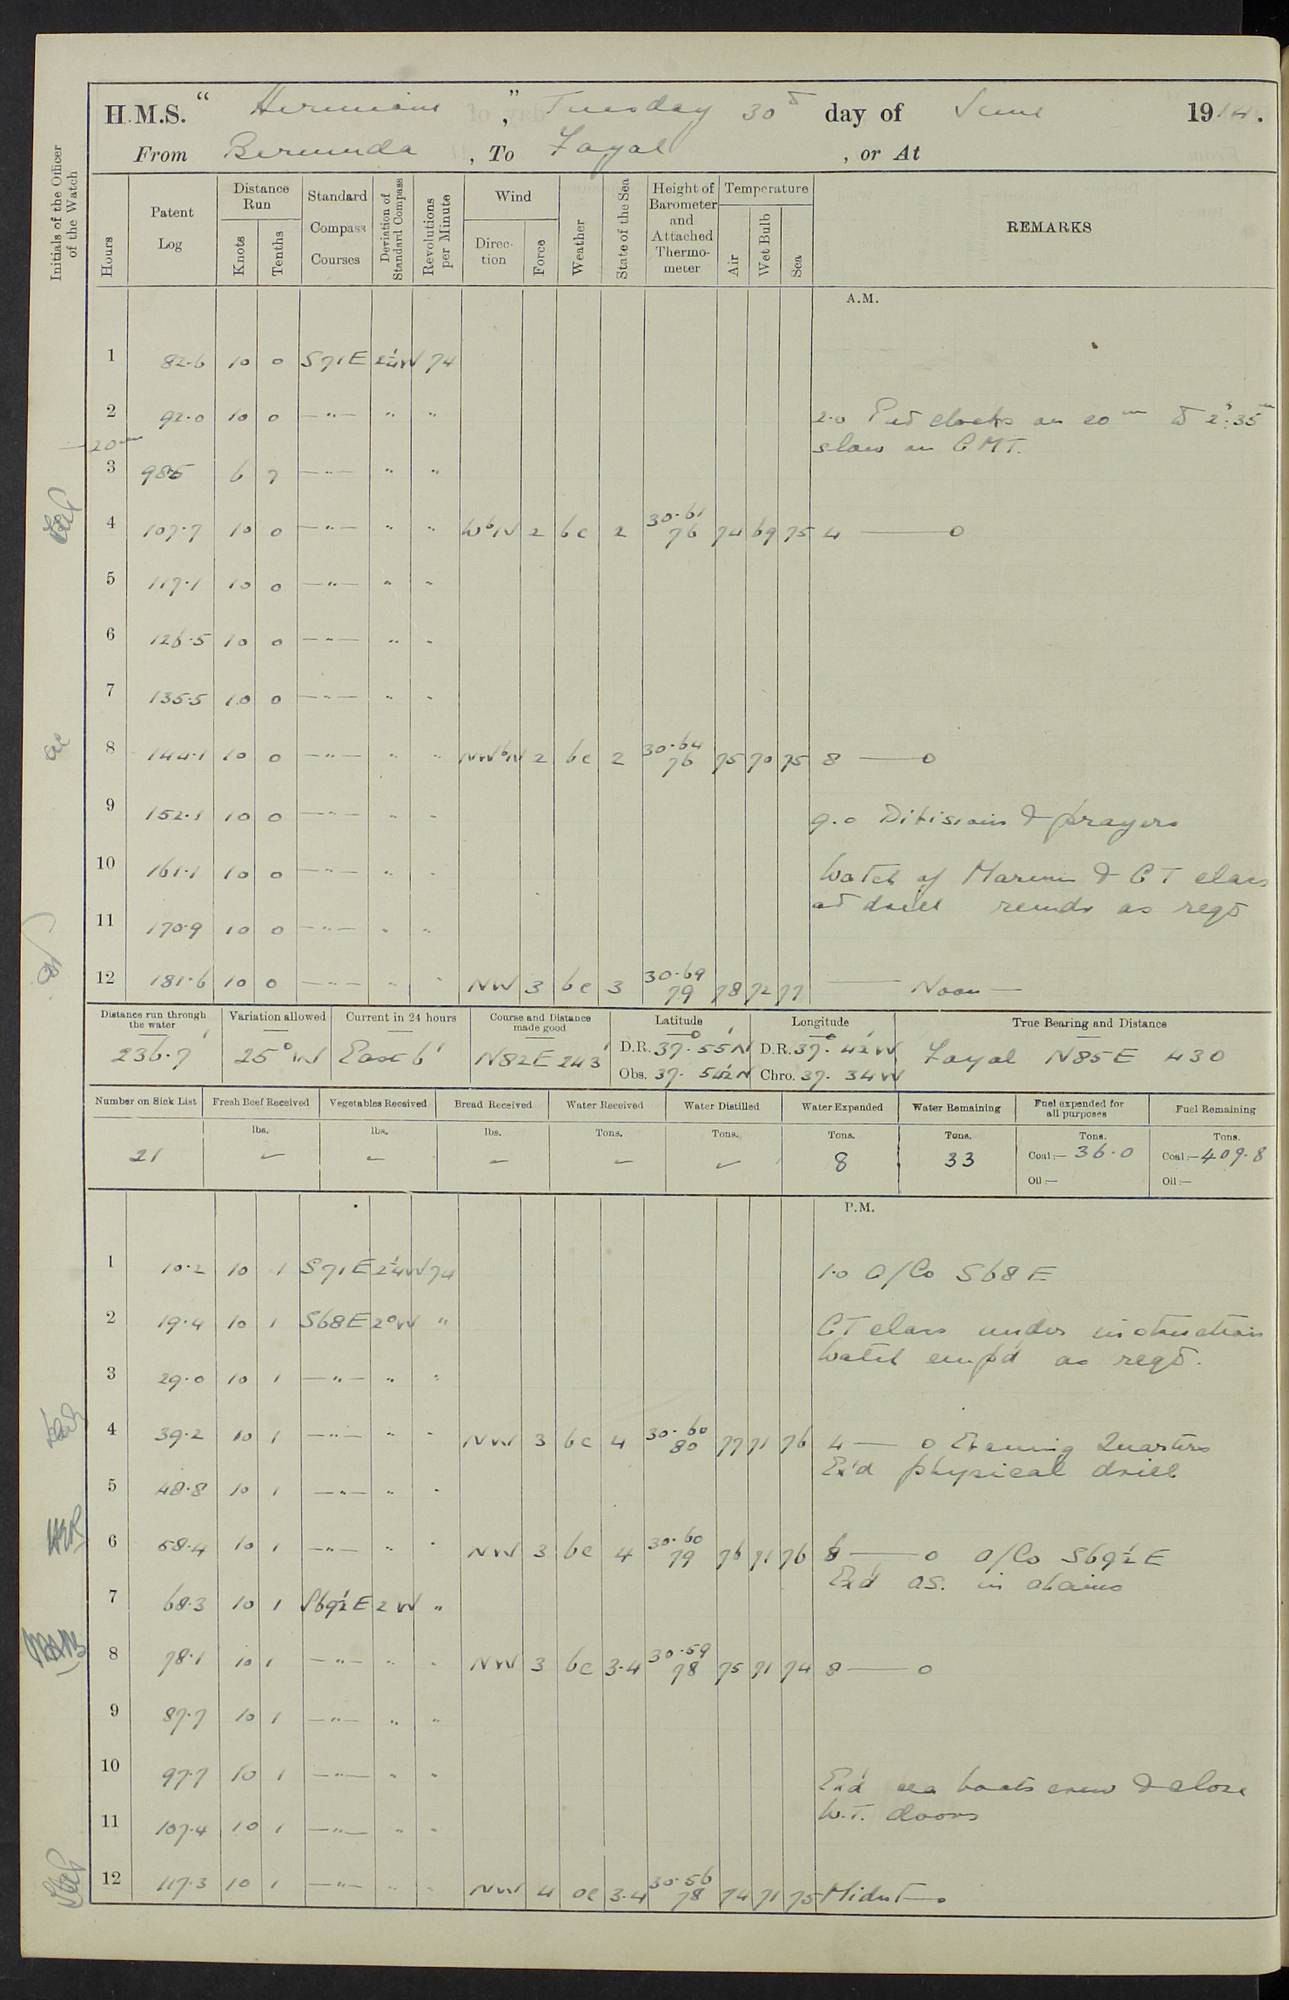 H.M.S. " Hermione ", Tuesday 30th day of June 1914.
From Bermuda, To Fayal, or At
Initials of the Officer of the Watch
Hours
Patent Log
Distance Run
Knots
Tenths
Standard Compass Courses
Deviation of Standard Compass
Revolutions per Minute
Wind
Direction
Force
Weather
State of the Sea
Height of Barometer and Attached Thermometer
Temperature
Air
Wet Bulb
Sea
REMARKS
A.M.
1 82.6 10 0 S71E 2¼W 74
2 92.0 10 0 —"— " " 2.0 Put clocks on 20m to 2h:35m
20m slow on GMT.
3 98.5 6 7 —"— " "
4 107.7 10 0 —"— " " WbN 2 bc 2 30.61 76 74 69 75 4 —— 0
5 117.1 10 0 —"— " "
6 126.5 10 0 —"— " "
7 135.5 10 0 —"— " "
8 144.1 10 0 —"— " " NWbN 2 bc 2 30.64 76 75 70 75 8 —— 0
9 152.1 10 0 —"— " " 9.0 Divisions & prayers
10 161.1 10 0 —"— " " Watch of Marines & CT class
at drill remdr as reqd
11 170.9 10 0 —"— " "
12 181.6 10 0 —"— " " NW 3 bc 3 30.69 79 78 72 77 —— Noon —
Distance run through the water
236.7'
Variation allowed
25° W
Current in 24 hours
East 6'
Course and Distance made good
N82E 243'
Latitude
D.R. 37° 55' N
Obs. 37. 54½ N
Longitude
D.R. 37° 42' W
Chro. 37. 34 W
True Bearing and Distance
Fayal N85E 430
Number on Sick List
21
Fresh Beef Received
lbs.
Vegetables Received
lbs.
Bread Received
lbs.
Water Received
Tons.
Water Distilled
Tons.
Water Expended
Tons.
8
Water Remaining
Tons.
33
Fuel expended for all purposes
Tons.
Coal:— 36.0
Oil:—
Fuel Remaining
Tons.
Coal:— 409.8
Oil:—
P.M.
1 10.2 10 1 S71E 2¼W 74 1.0 A/Co S68E
2 19.4 10 1 S68E 2°W " CT class under instruction
Watch emp'd as reqd.
3 29.0 10 1 —"— " "
4 39.2 10 1 —"— " " NW 3 bc 4 30.60 80 77 71 76 4 — 0 Evening Quarters
Ex'd physical drill
5 48.8 10 1 —"— " "
6 58.4 10 1 —"— " " NW 3 bc 4 30.60 79 76 71 76 6 —— 0 A/Co S69½E
Ex'd as. in
7 68.3 10 1 S69½E 2W "
8 78.1 10 1 —"— " " NW 3 bc 3.4 30.59 78 75 71 74 8 — 0
9 87.7 10 1 —"— " "
10 97.7 10 1 —"— " " Ex'd sea boats crew & close
W.T. doors
11 107.4 10 1 —"— " "
12 117.3 10 1 —"— " " NW 4 oc 3.4 30.56 78 74 71 75 Midnt — 0